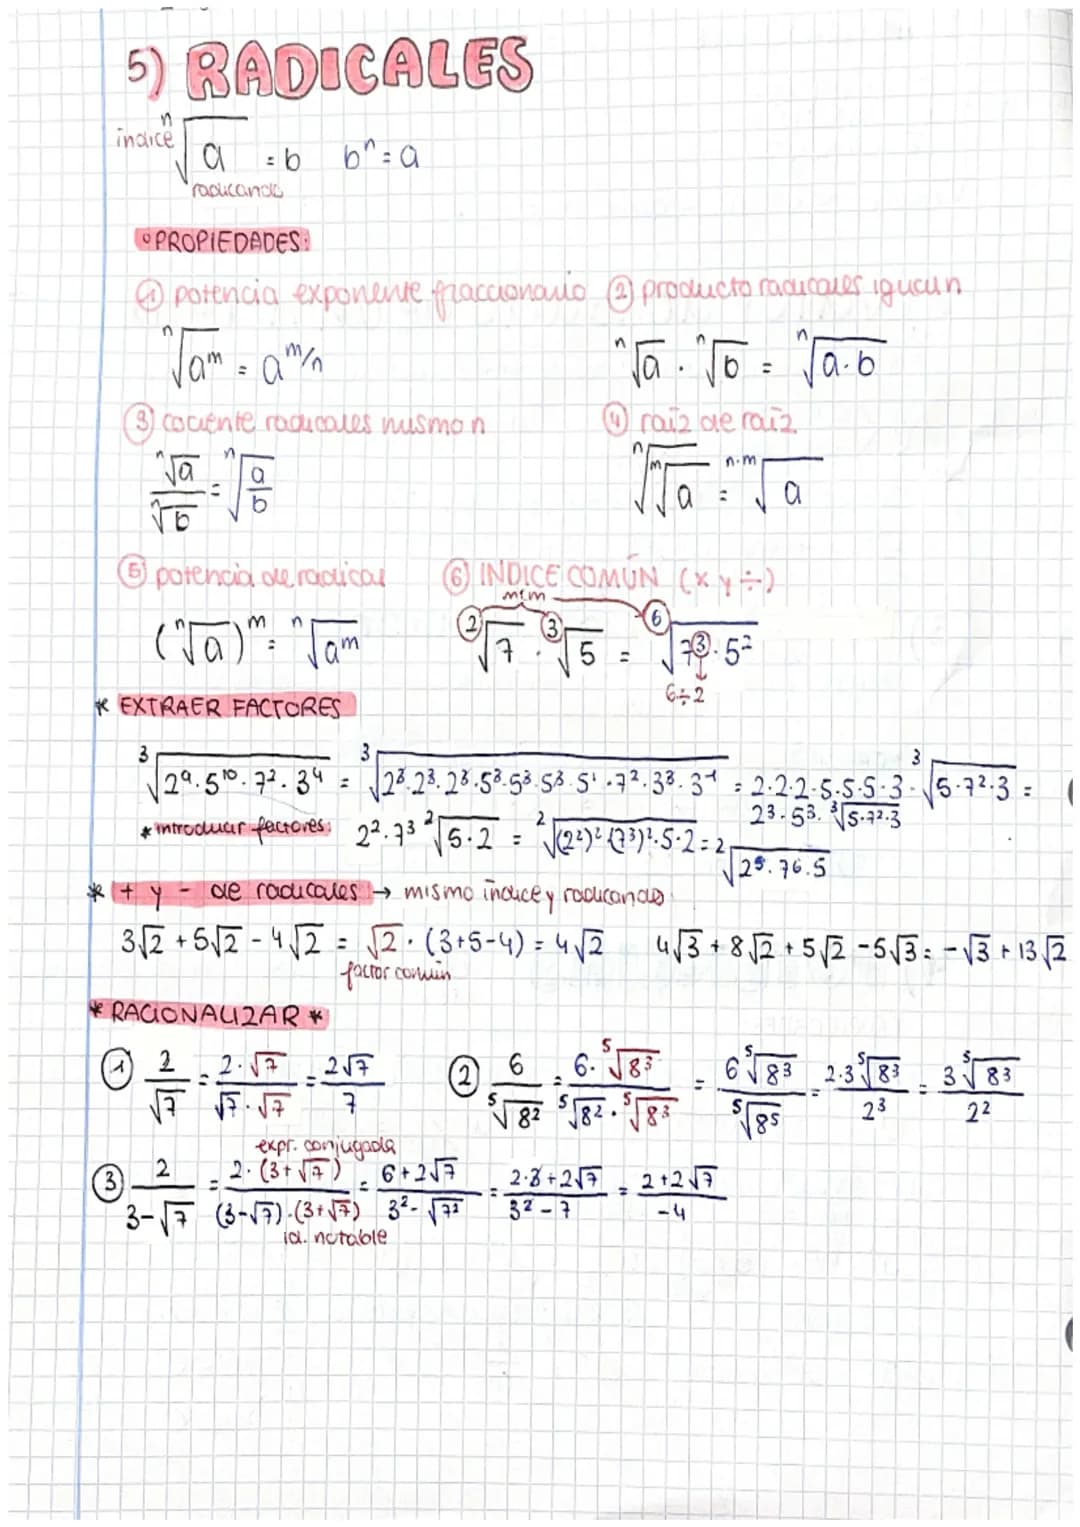 5) RADICALES
índice ⁿ√a = b   bⁿ = a
radicando
° PROPIEDADES:
① potencia exponente fraccionario ② producto radicales igual n
ⁿ√aᵐ = a^m/n   ⁿ√a · ⁿ√b = ⁿ√a·b
③ cociente radicales mismo n ④ raíz de raíz
ⁿ√a / ⁿ√b = ⁿ√(a/b)   ⁿ√ᵐ√a = ⁿ·ᵐ√a
⑤ potencia de radical ⑥ INDICE COMÚN (x y ÷)
mcm
(ⁿ√a)ᵐ = ⁿ√aᵐ   ²√7 · ³√5 = ⁶√7³·5²
6÷2
* EXTRAER FACTORES
³√2⁹·5¹⁰·7²·3⁴ = ³√2³·2³·2³·5³·5³·5³·5¹·7²·3³·3⁻¹ = 2·2·2·5·5·5·3·³√5·7²·3 =
2³·5³·³√5·7²·3
* introducir factores: 2²·7³ ²√5·2 = ²√(2²)²·(7³)²·5·2 = ²√2⁵·7⁶·5
* + y - de radicales → mismo índice y radicando
3√2 + 5√2 - 4√2 = √2·(3+5-4) = 4√2   4√3 + 8√2 + 5√2 - 5√3 = -√3 + 13√2
factor común
* RACIONALIZAR *
① 2/√7 = 2·√7/√7·√7 = 2√7/7   ② 6/⁵√8² = 6·⁵√8³/⁵√8²·⁵√8³ = 6⁵√8³/⁵√8⁵ = 2·3⁵√8³/2³ = 3⁵√8³/2²
expr. conjugada
③ 2/3-√7 = 2·(3+√7)/(3-√7)·(3+√7) = 6+2√7/3²-√7² = 2·3+2√7/3²-7 = 2+2√7/-4
id. notable